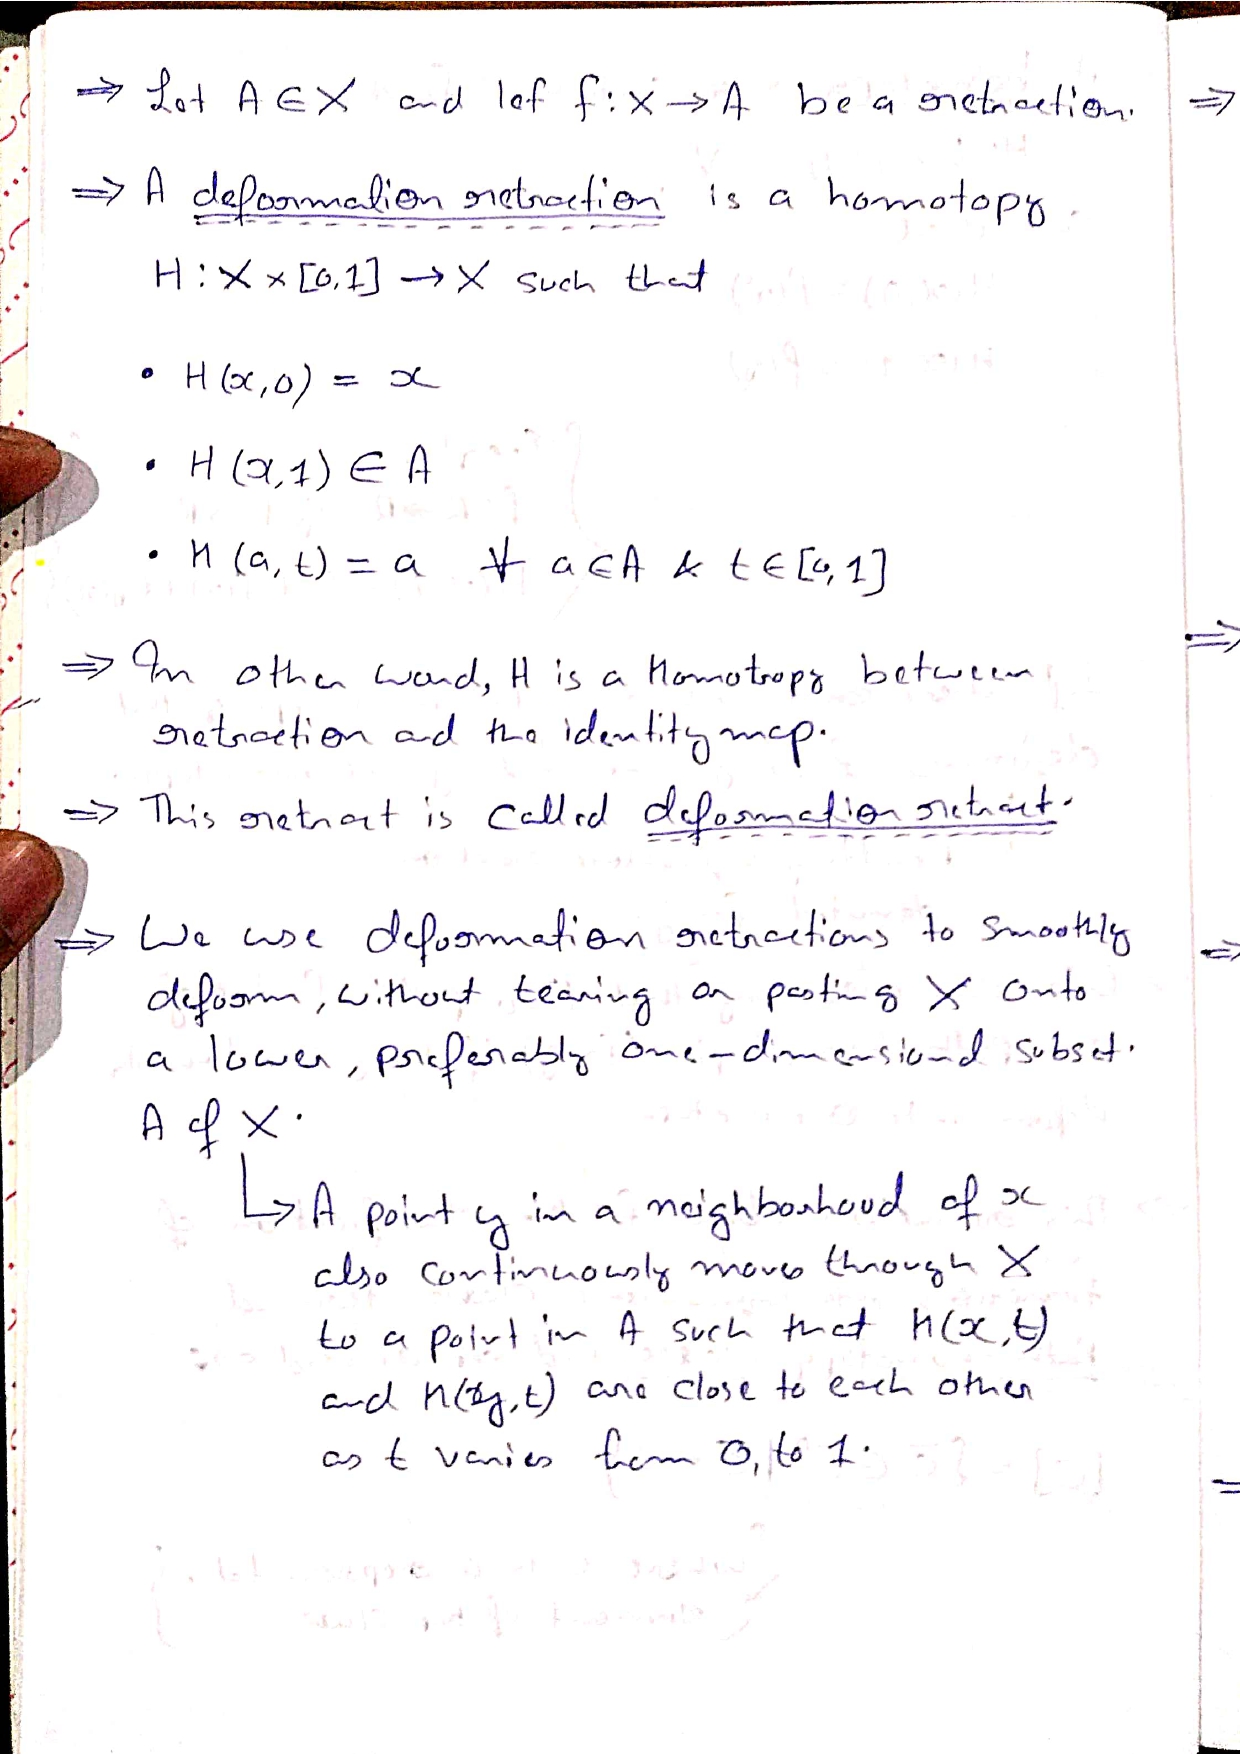 ⇒ Let A ∈ X and let f : X → A be a retraction.
⇒ A deformation retraction is a homotopy
H : X × [0,1] → X such that
• H(x,0) = x
• H(x,1) ∈ A
• H(a,t) = a ∀ a ∈ A & t ∈ [0,1]
⇒ In other word, H is a Homotropy between
retraction and the identity map.
⇒ This retract is called deformation retract.
⇒ We use deformation retractions to smoothly
deform, without tearing or pasting X onto
a lower, preferably one-dimensional subset.
A of X.
↳ A point y in a neighborhood of x
also continuously moves through X
to a point in A such that H(x,t)
and H(y,t) are close to each other
as t varies from 0, to 1.